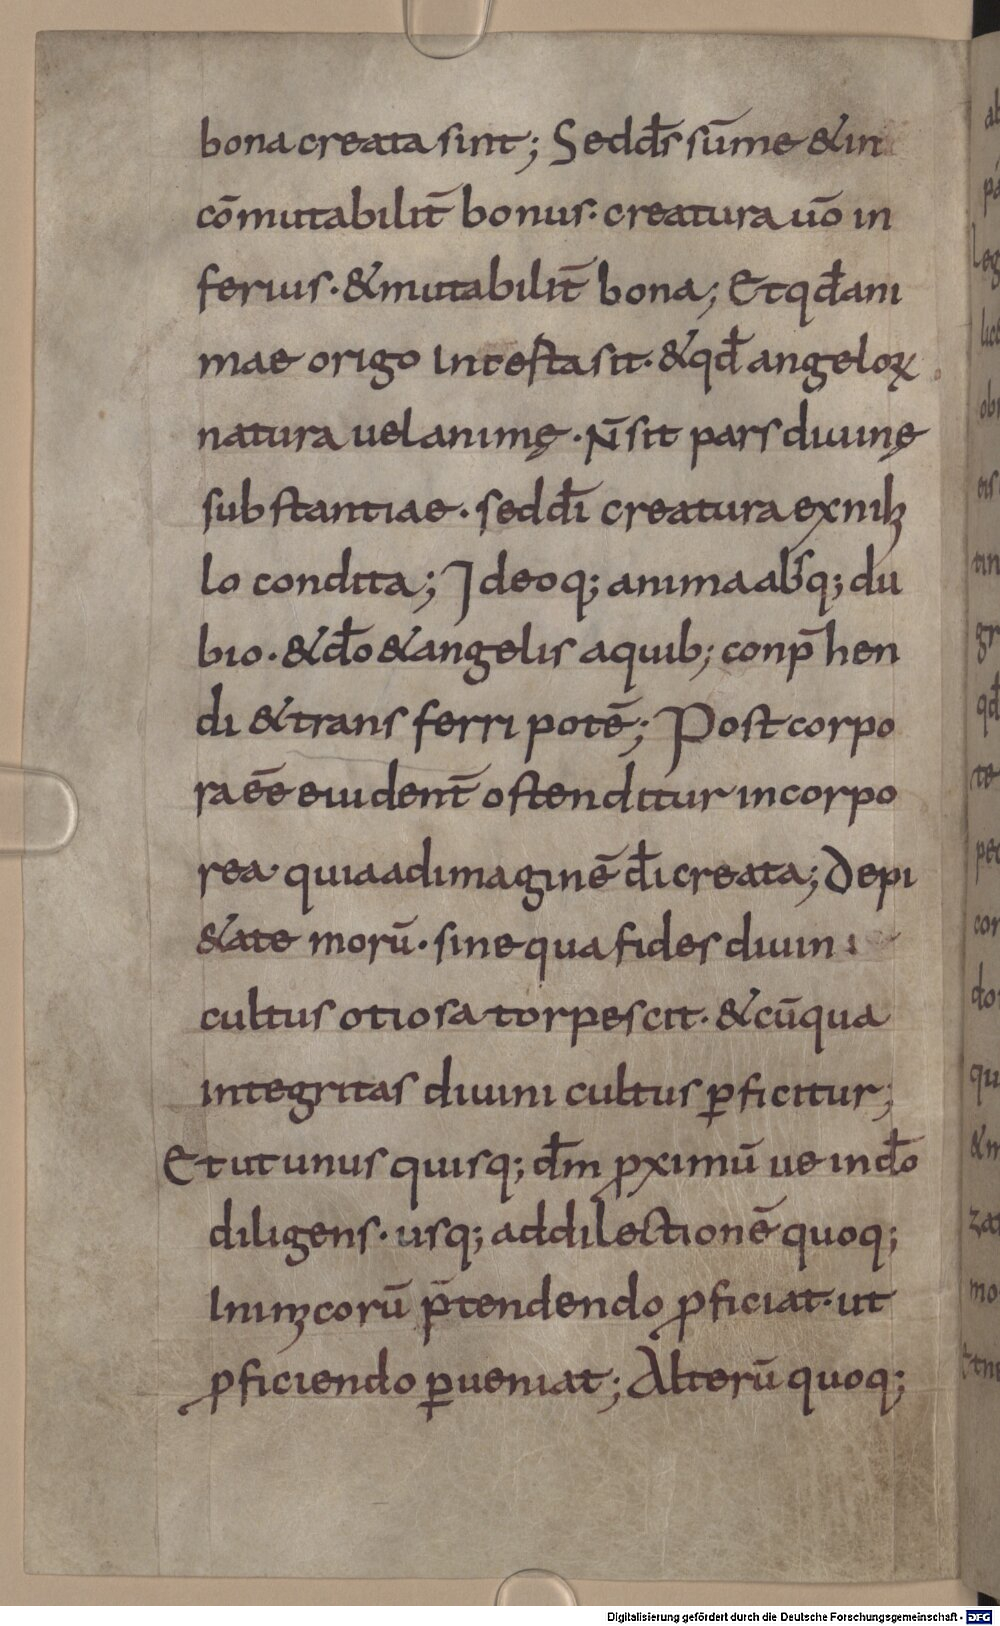 bona creata sint; Sed d̄s sūme & in
cōmutabilit̄ bonus· creatura uō in
ferius·&mutabilit̄ bona; Et qđ ani
mae origo Incesta sit·&qđ angeloꝝ
natura uel animę·N̄ sit pars diuinę
substantiae·sed d̄i creatura exnihi
lo condita; Ideoq; anima absq; du
bio·&d̄o &angelis aquib; conp̄hen
di &transferri potē; Post corpo
ra ēē euident̄ ostenditur incorpo
rea· quia adimaginē d̄i creata; De pi
&ate morū· sine qua fides diuini
cultus otiosa torpescit·&cū qua
integritas diuini cultus ꝑficitur;
Et ut unus quisq; d̄m ꝓximū ue in d̄o
diligens· usq; addilectionē quoq;
Inimicorū p̄tendendo ꝓficiat· ut
ꝓficiendo ꝑueniat; Alterū quoq;
Digitalisierung gefördert durch die Deutsche Forschungsgemeinschaft - DFG